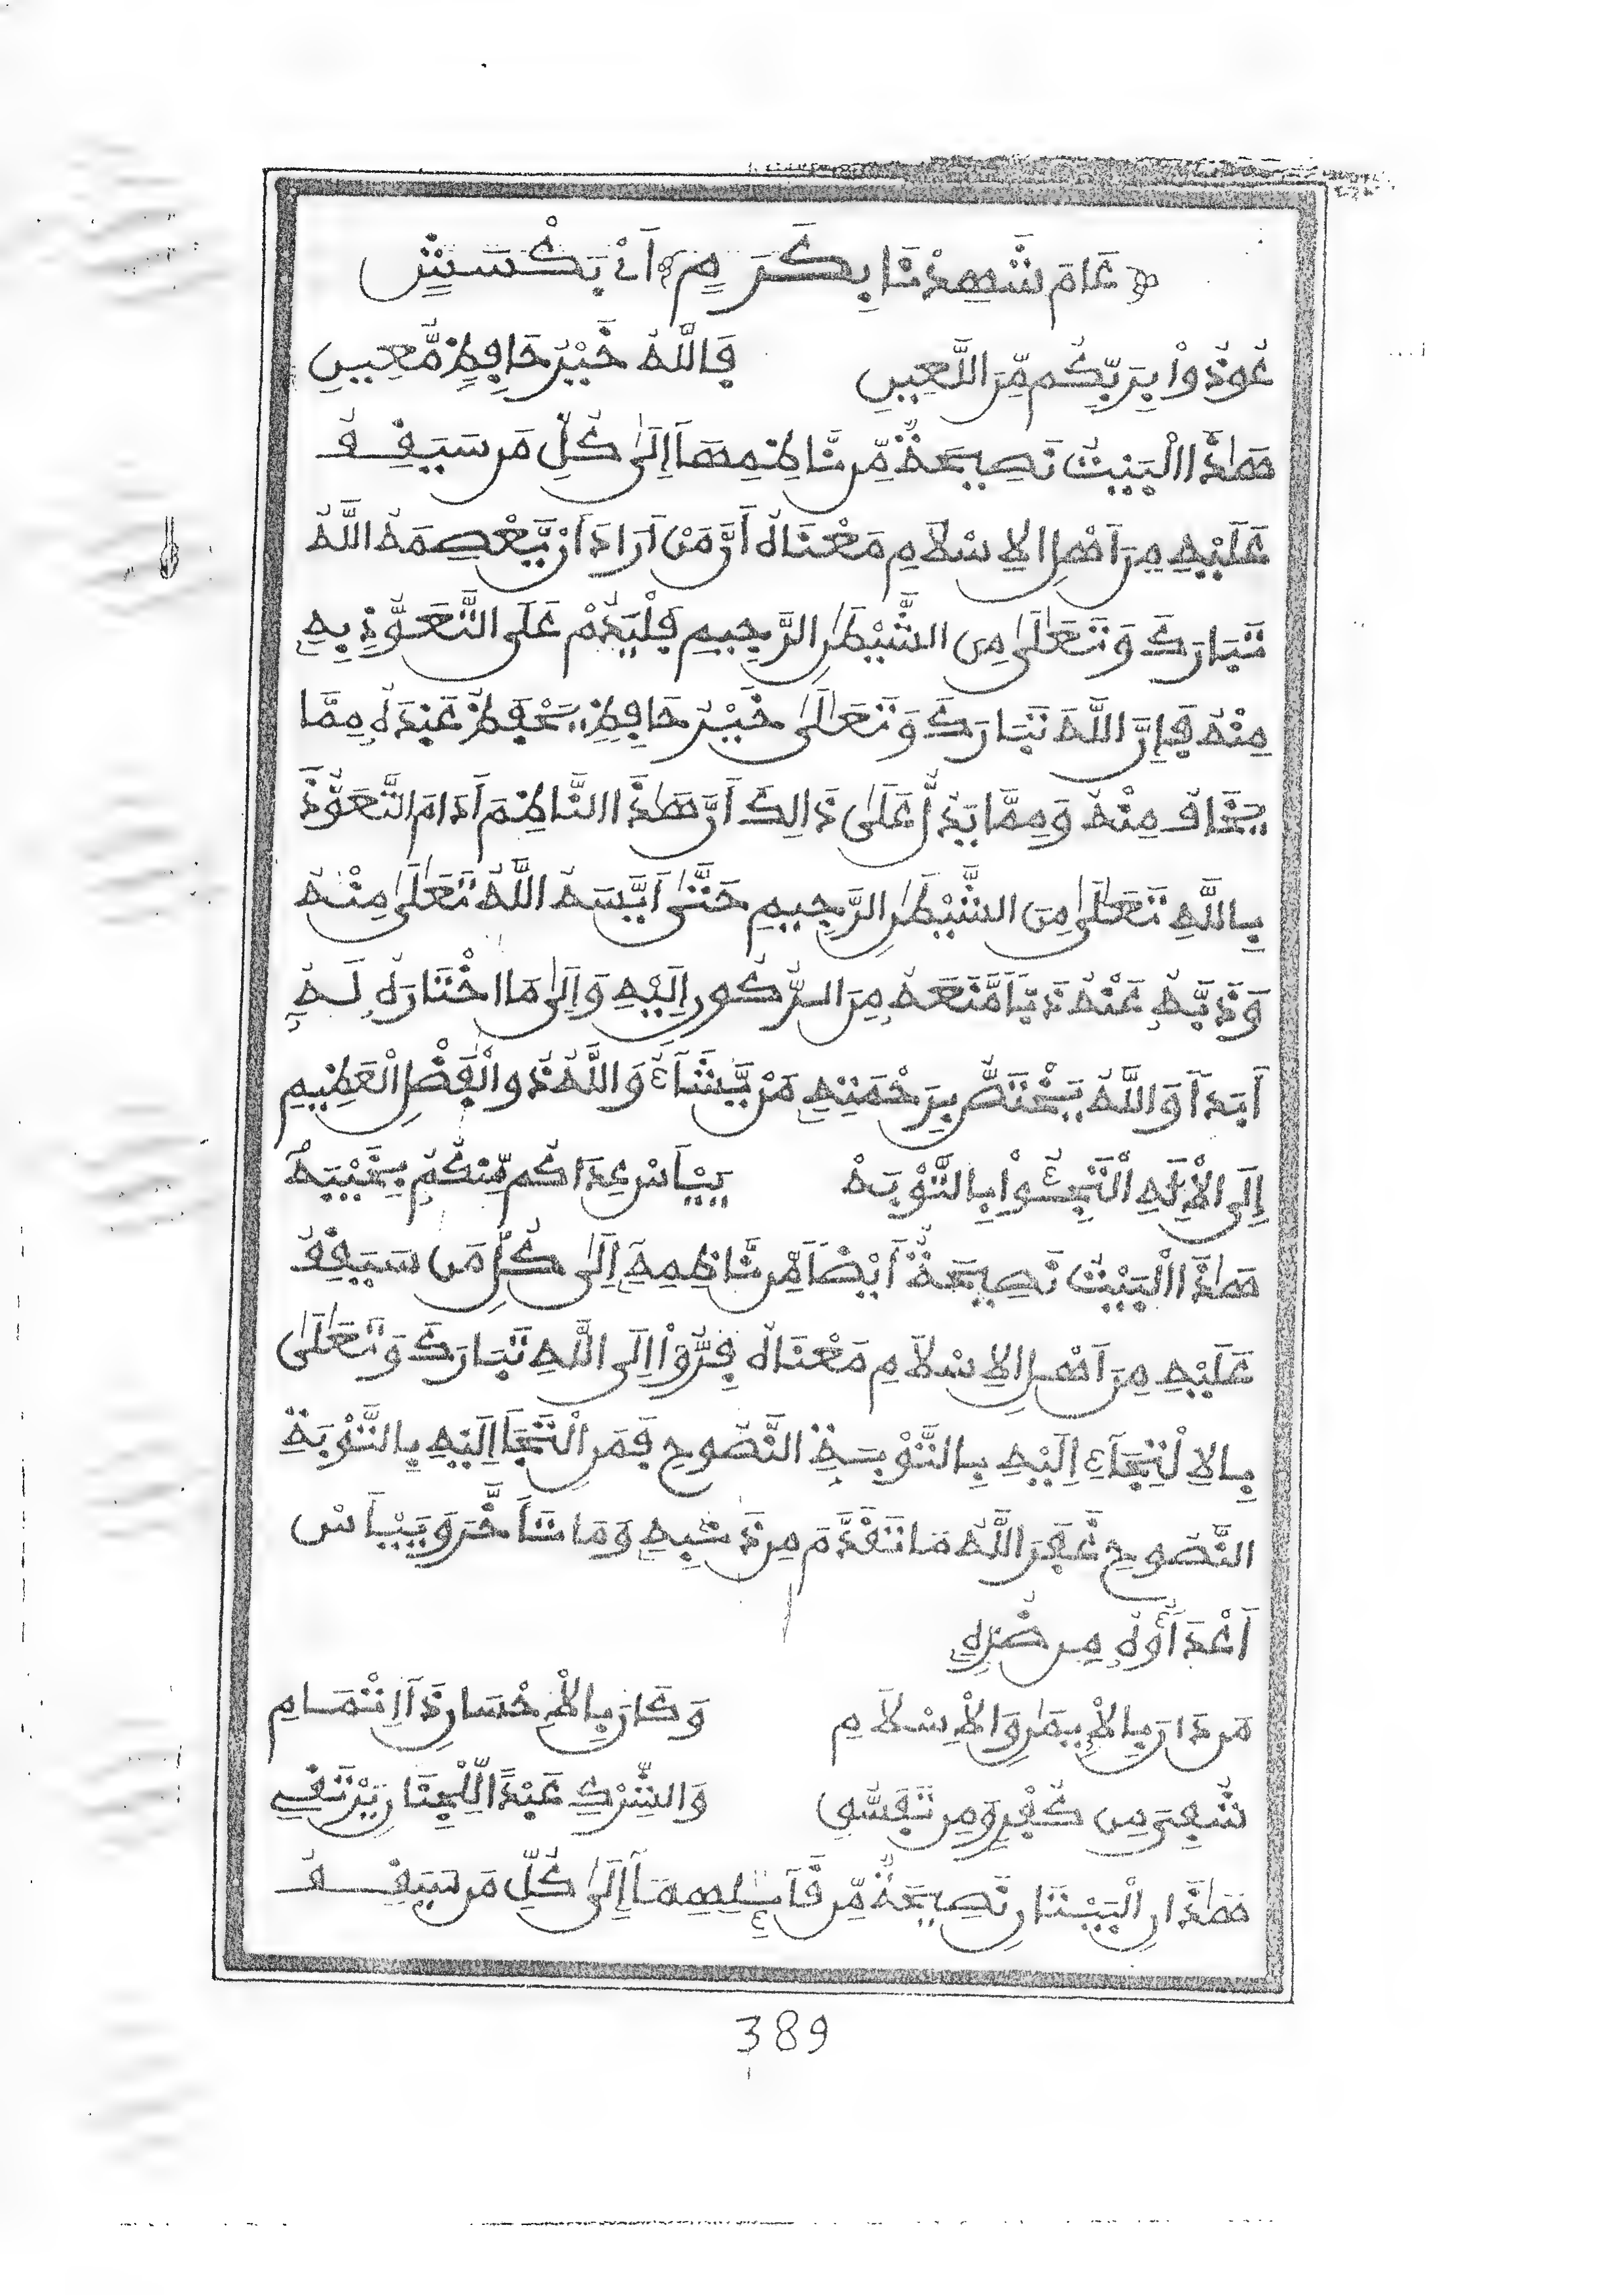 عَامَ شَهِدْنَا بِكَرَمٍ اَنْ يَكْسَشٍ
عُوذُواْ بِرَبِّكُم مِّنَ اللَّعِينِ فَاللَّهُ خَيْرُ حَافِظٍ مُّعِينِ
هَٰذَا الْبَيْتُ نَصِيحَةٌ مِّن نَّاظِمِهَا إِلَىٰ كُلِّ مَن سَيَقِفُ
عَلَيْهِ مِنَ اَهْلِ الاِسْلَامِ مَعْنَاهُ أَنَّ مَنْ اَرَادَ أَنْ يَّعْصِمَهُ اللَّهُ
تَبَارَكَ وَتَعَٰلَىٰ مِنَ الشَّيْطَٰنِ الرَّجِيمِ فَلْيَدُمْ عَلَى التَّعَوُّذِ بِهِ
مِنْهُ فَإِنَّ اللَّهَ تَبَارَكَ وَتَعَٰلَىٰ خَيْرُ حَافِظٍ يَحْفَظُ عَبْدَهُ مِمَّا
يَخَافُ مِنْهُ وَمِمَّا يَدُلُّ عَلَىٰ ذَالِكَ أَنَّ هَٰذَا النَّاظِمَ أَدَامَ التَّعَوُّذَ
بِاللَّهِ تَعَٰلَىٰ مِنَ الشَّيْطَٰنِ الرَّجِيمِ حَتَّىٰ اَيَّسَهُ اللَّهُ تَعَٰلَىٰ مِنْهُ
وَذَبَّهُ عَنْهُ ذَبّاً مَّنَعَهُ مِنَ الرُّكُونِ إِلَيْهِ وَإِلَىٰ مَا اخْتَارَهُ لَهُ
أَبَداً وَاللَّهُ يَخْتَصُّ بِرَحْمَتِهِ مَنْ يَّشَآءُ وَاللَّهُ ذُو الْفَضْلِ الْعَظِيمِ
إِلَى الْإِلَٰهِ الْتَجِئُواْ بِالتَّوْبَهْ يَيْأَسْ عِدَاكُم مِّنكُمُ بِخَيْبَهْ
هَٰذَا الْبَيْتُ نَصِيحَةٌ أَيْضاً مِّن نَّاظِمِهِ إِلَىٰ كُلِّ مَن سَيَقِفُ
عَلَيْهِ مِنَ اَهْلِ الاِسْلَامِ مَعْنَاهُ فِرُّوٓاْ إِلَى اللَّهِ تَبَارَكَ وَتَعَٰلَىٰ
بِالاِلْتِجَآءِ إِلَيْهِ بِالتَّوْبَةِ النَّصُوحِ فَمَنِ الْتَجَأَ إِلَيْهِ بِالتَّوْبَةِ
النَّصُوحِ غَفَرَ اللَّهُ مَا تَقَدَّمَ مِن ذَنبِهِ وَمَا تَأَخَّرَ وَيَيْأَسْ
أَعْدَآؤُهُ مِن ضُرِّهِ
مَن دَانَ بِالْإِيمَٰنِ وَالْإِسْلَامِ وَكَانَ بِالْإِحْسَانِ ذَا اِنْتِمَامِ
شُفِيَ مِن كُفْرٍ وَمِن تَفَسُّقِ وَالشِّرْكِ عَبْداً لِّلْجِنَانِ يَرْتَقِي
هَٰذَانِ الْبَيْتَانِ نَصِيحَةٌ مِّن قَآئِلِهِمَا إِلَىٰ كُلِّ مَن سَيَقِفُ
389